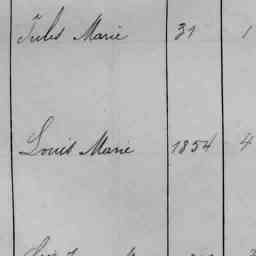 Jules Marie 31 1
Louis Marie 1854 4